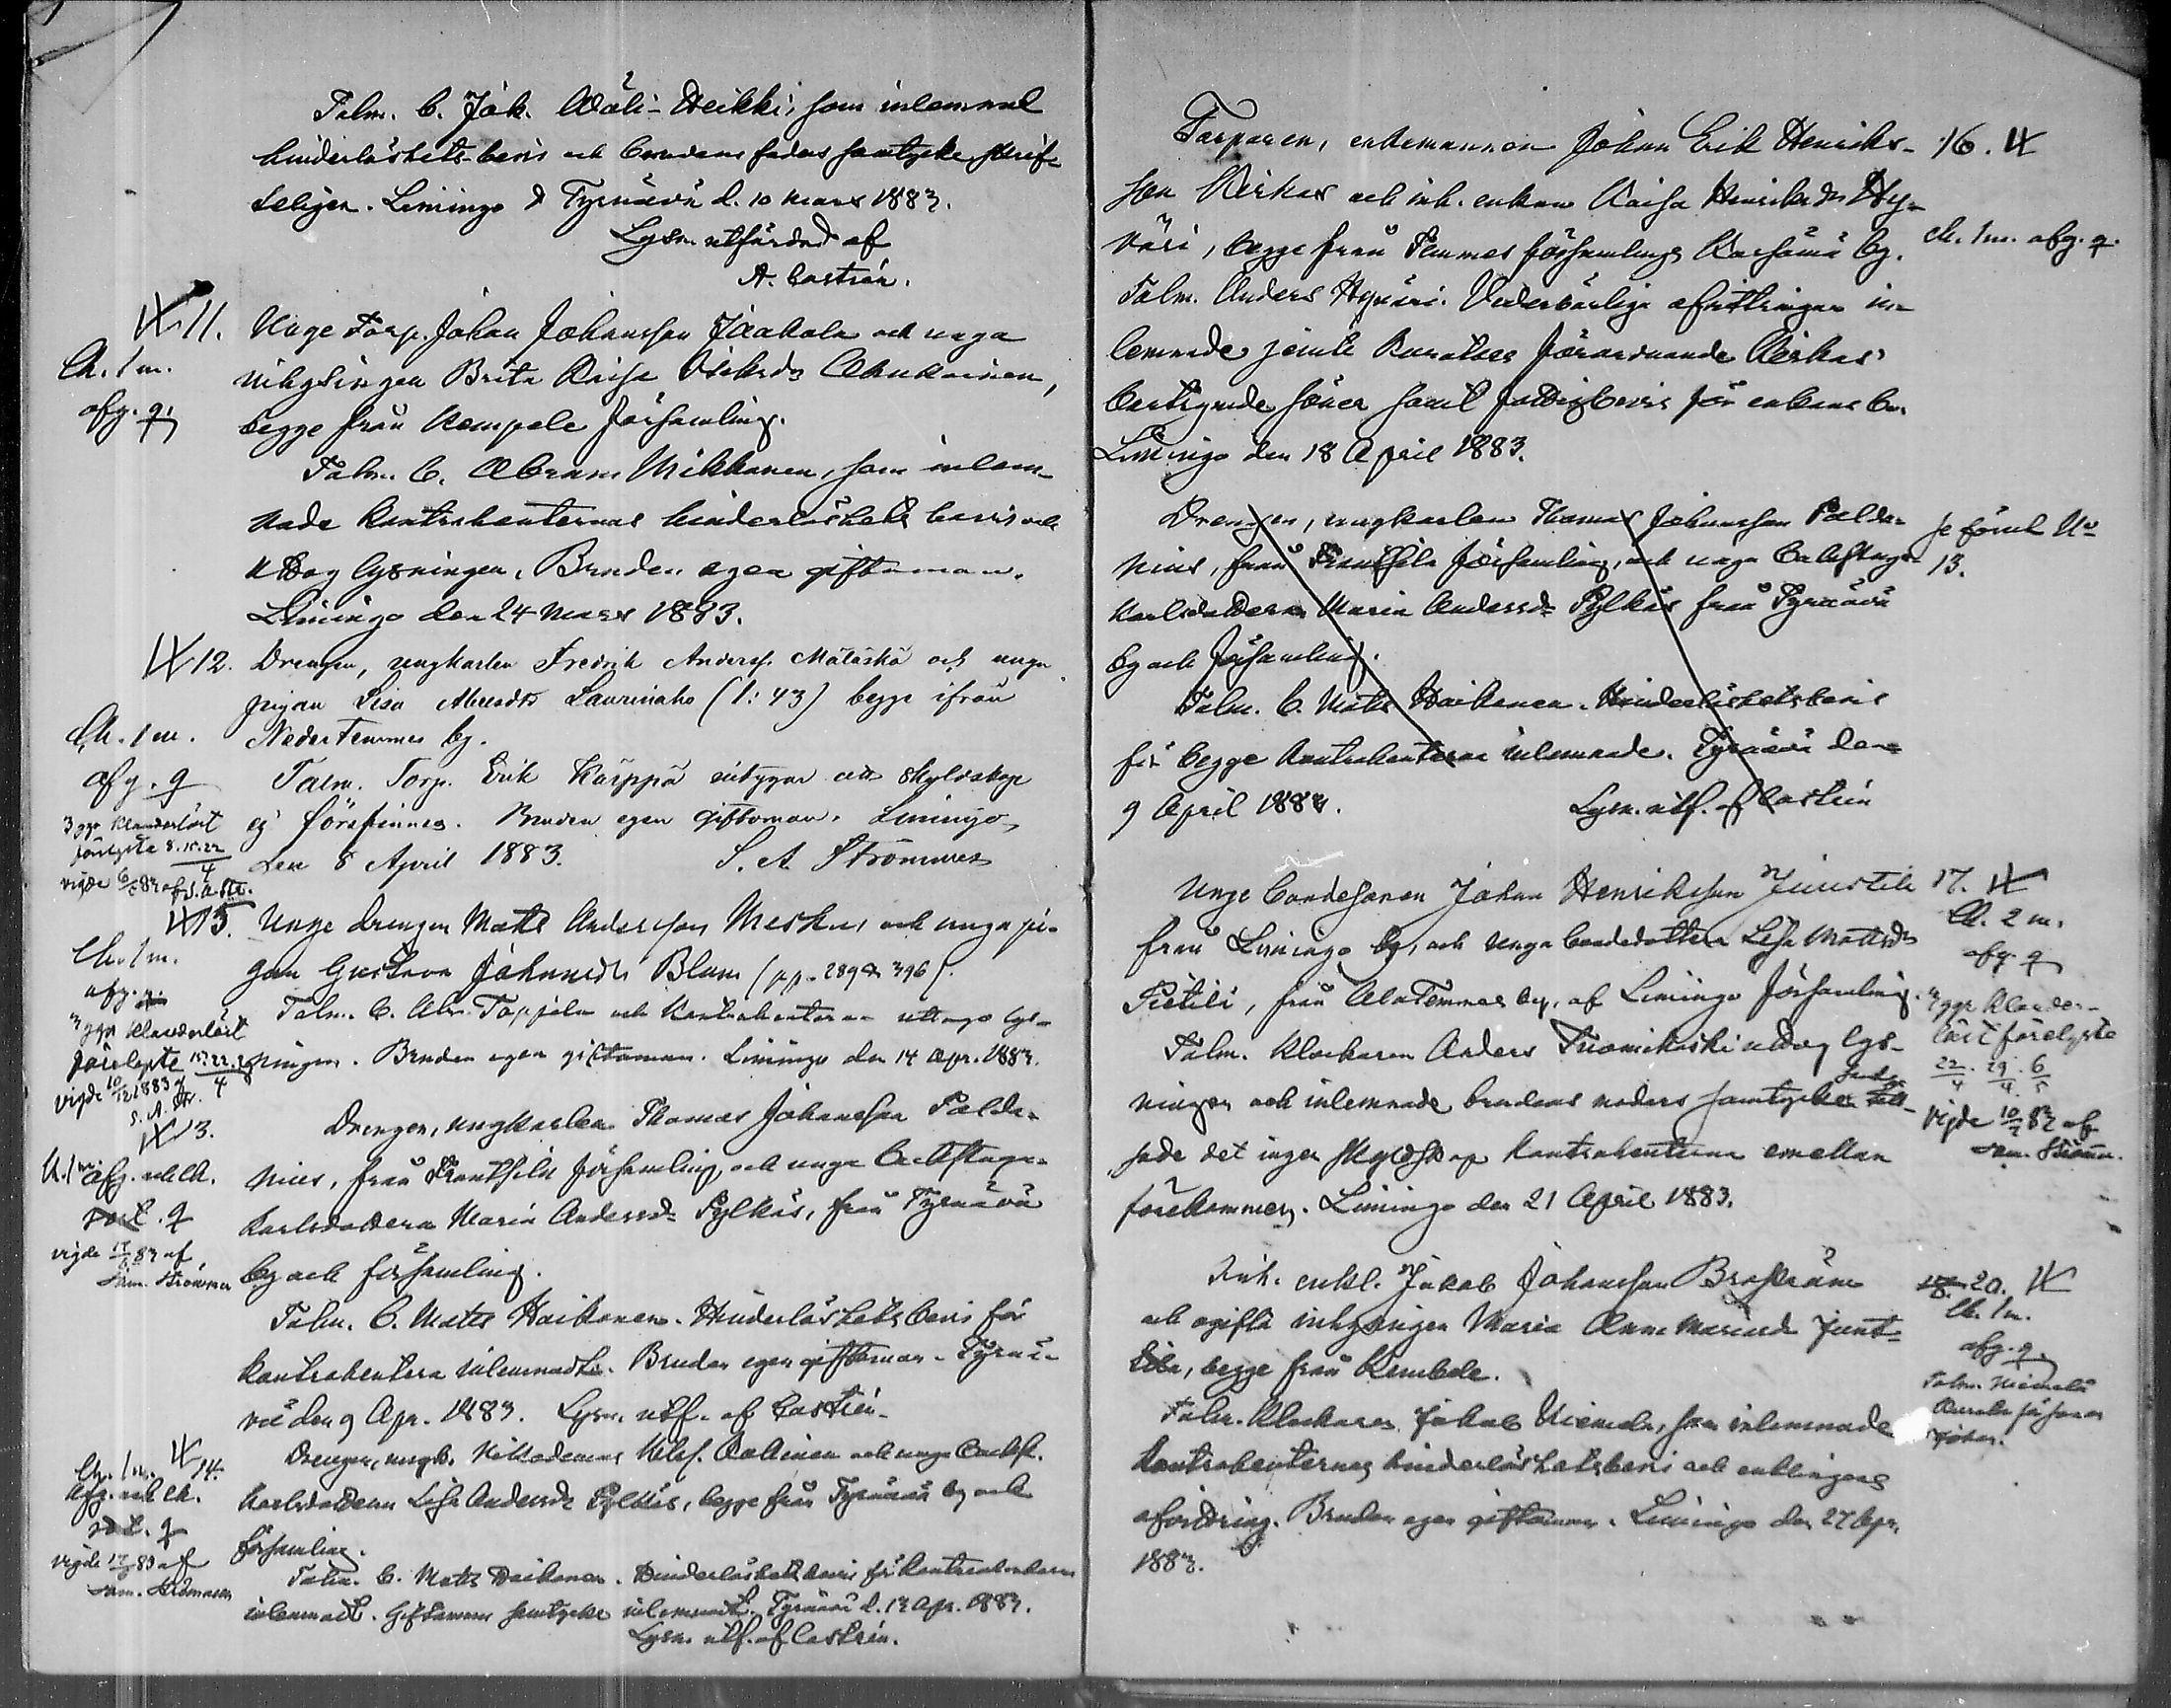 Talm. B. Jak. Wäli-Heikki, som inlemnat
hinderlöshets-bevis och brudens faders samtycke skrift-
seligen. Limingo & Tyrnävä d. 10 Mars 1883.
Lysn. utfärdad af
A. Castrén.
11.
Ch. 1 m.
afg. g.
Unge Torp. Johan Johansson Jaakola och unga
inhysingen Brita Kaisa
begge från Kempele Församling.
Talm. B. Abram Mikkonen, som inlem-
nade kontrahenternas hinderlöshets bevis och
uttog lysningen. Bruden egen giftoman.
Limingo den 24 Mars 1883.
12.
Ch. 1 m.
afg. g
3 ggr klanderlöst
förelyste 8. 15. 22
4
vigde 6/5 83 af S. A. Str.
Drengen, ungkarlen Fredrik Anders. Mätäskö och unga
pigan Lisa Laurinaho (1: 43) begge ifrån
Nedertemmes by.
Talm. Torp. Erik Karppa intygar att skyldskap
ej förefinnes. Bruden egen giftoman. Limingo
den 8 April 1883. S. A. Strömmer
15.
Ch. 1 m.
afg. g.
3 ggr klanderlöst
förelyste 15. 22. 29
4
vigde 10/12 1883 af
S. A. Str.
Unge drengen Matts Andersson Meskus och unga pi-
gan Gustava Johansdr Blum (pp. 289 & 396).
Talm. B. Abr. Toppila och kontrahenterna uttogo lys-
ningen. Bruden egen giftoman. Limingo den 14 Apr. 1883.
13.
Ch. 1 m.
afg. och ch.
g
vigde 17/6 83 af
Sam. Strömmer
Drengen, ungkarlen Thomas Johansson Palda-
nius, från Frantsila församling och unga Backstuga-
karlsdottern Maria Andersdr Pylkäs, från Tyrnävä
by och församling.
Talm. B. Matts Haikonen. Hinderlöshetsbevis för
kontrahentera inlemnadt. Bruden egen giftoman. Tyrnä-
vä den 9 Apr. 1883. Lysn. utf. af Castrén.
14.
Ch. 1 m.
afg. och ch.
g
vigde 17/6 83 af
Sam. Strömmer
Drengen, ungk. Nikodemus och unga Backst.
karlsdottern Lisa Andersdr Pylkäs, begge från Tyrnävä by och
församling.
Talm. B. Matts Haikonen. Hinderlöshets bevis för kontrahenterna
inlemnadt. Giftomans samtycke inlemnadt. Tyrnävä d. 13 Apr. 1883.
Lysn. utf. af Castrén.
Torparen, enkemannen Johan Erik Henriks-
son Kerkas och inh. enkan Kaisa Henriksdr Hy-
väri, begge från Temmes församlings by.
Talm. Anders Hyväri. Vederbörliga afvittringar in-
lemnade jemte Kuratses förordnande Kerkas'
samt fattigbevis för enkans
Limingo den 18 April 1883.
16.
Ch. 1 m. afg. g.
Drengen, ungkarlen Thomas Johansson Palda-
nius, från Frantsila församling, och unga Backstuga-
karlsdottern Maria Andersdr Pylkäs från Tyrnävä
by och församling.
Talm. B. Matts Haikonen. Hinderlöshetsbevis
för begge kontrahenterna inlemnade. Tyrnävä den
9 April 1883. Lysn. utf. af Castrén
Se föreg. No
13.
Unge bondesonen Johan Henriksson Junttila
från Limingo by, och unga bondedottern Lisa Mattsdr
Pietilä, från AlaTemmes by, af Limingo församling.
Talm. klockaren Anders Tuomikoski uttog lys-
ningen och inlemnade brudens moders samtycke
sade det ingen skyldskap kontrahenterna emellan
förekommer. Limingo den 21 April 1883.
17.
Ch. 2 m.
afg. g
3 ggr klander-
löst förelyste
22/4. 29/4. 6/5
vigde 10/7 83 af
Sam. Strömm.
Inh. enkl. Jakob Johansson Broström
och ogifta inhysingen Maria Anna Mariasdr Junt-
tila, begge från Kembele.
Talm. klockaren Jakob Niemelä, som inlemnade
kontrahenternas hinderlöshetsbevis och enklingens
afvittring. Bruden egen giftoman. Limingo den 27 Apr.
1883.
20.
Ch. 1 m.
afg. g.
Talm. Niemelä